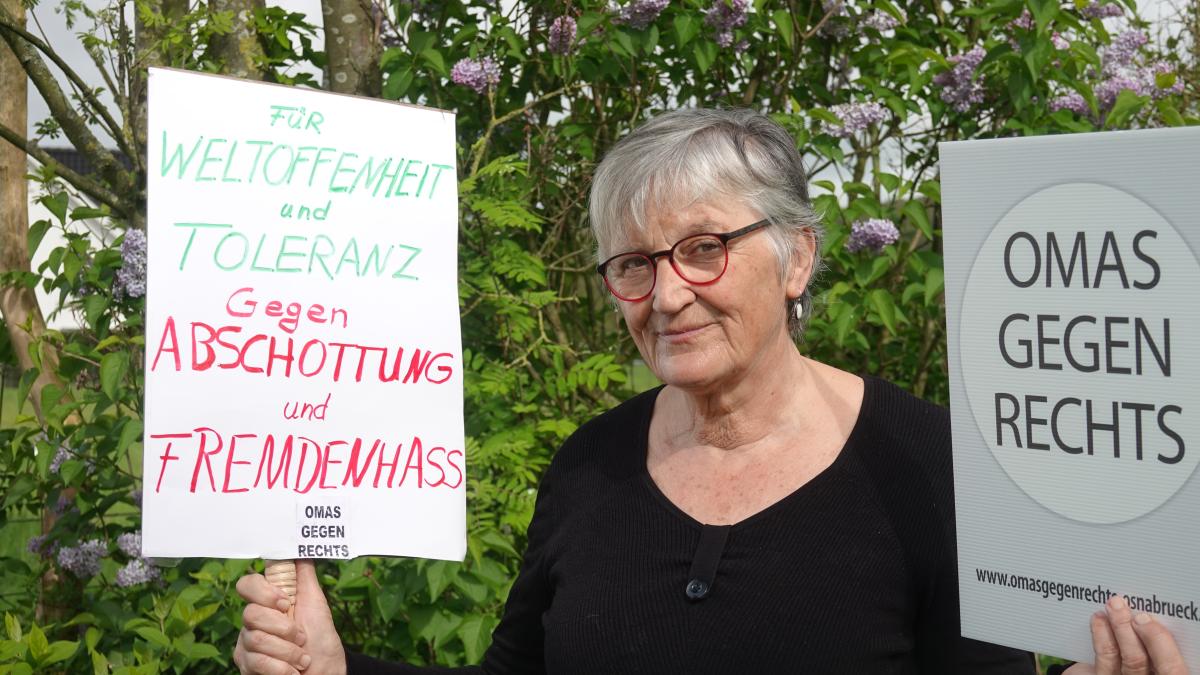 FÜR
WELTOFFENHEIT
und
TOLERANZ
Gegen
ABSCHOTTUNG
und
FREMDENHASS
OMAS
GEGEN
RECHTS
OMAS
GEGEN
RECHTS
www.omasgegenrechts-osnabrueck.